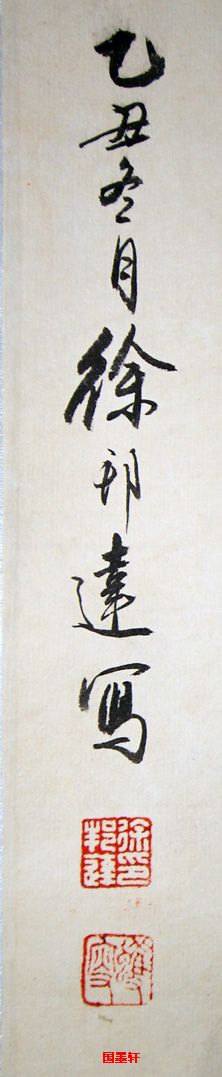 乙丑冬月徐邦達寫
徐邦達印
国墨轩